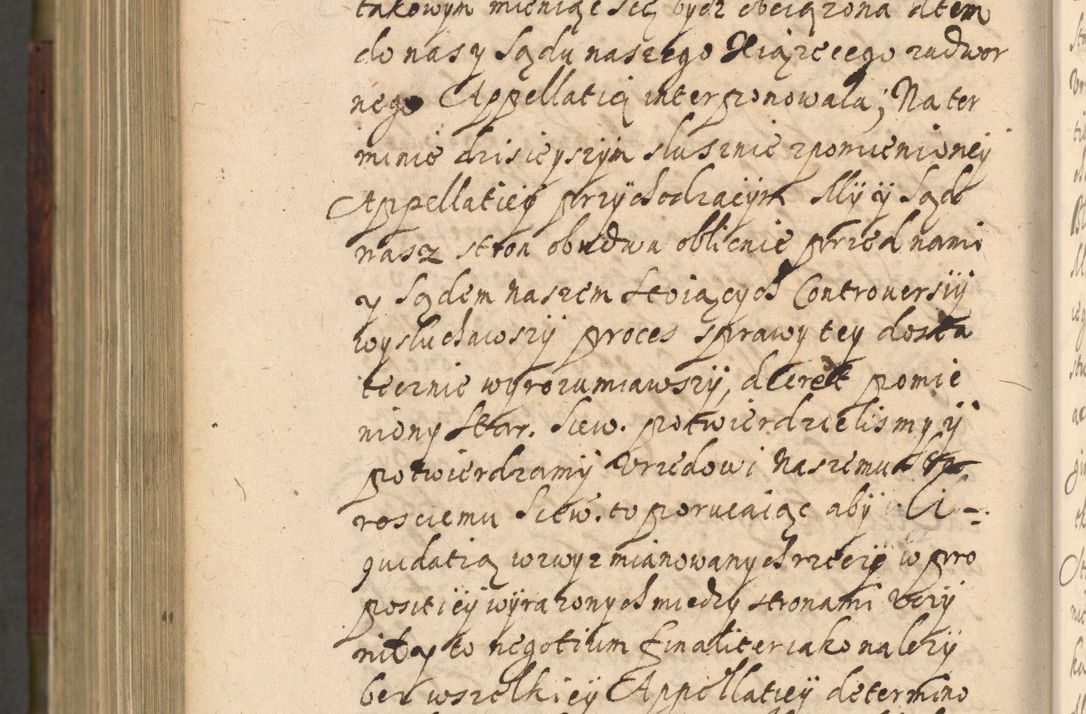 takowym mieniąc się bydz obciązona dtem
do nas y Sądu naszego Xiązęcego zadwor
nego Appellatią interponowała; Na ter
minie dzisieyszym słusznie zpomienioney
Appellatiey przychodzącym My y Sąd
nasz stron obudwu oblicznie przed nami
y Sądem naszem stoiących Controuersiy
wysłuchawszy proces sprawy tey dosta
tecznie wyrozumiawszy, decret pomie
niony Star. Siew. potwierdzielismy y
potwierdzamy Vrzedowi naszemu
rosciemu Siew. to porucaiąc aby Li-
quidatią wzwyz mianowanych rzeczy w pro
positiey wyrazonych miedzy stronami Vczy
niły to negotium finaliter iako nalezy
bez wszelkiey Appellatiey determino